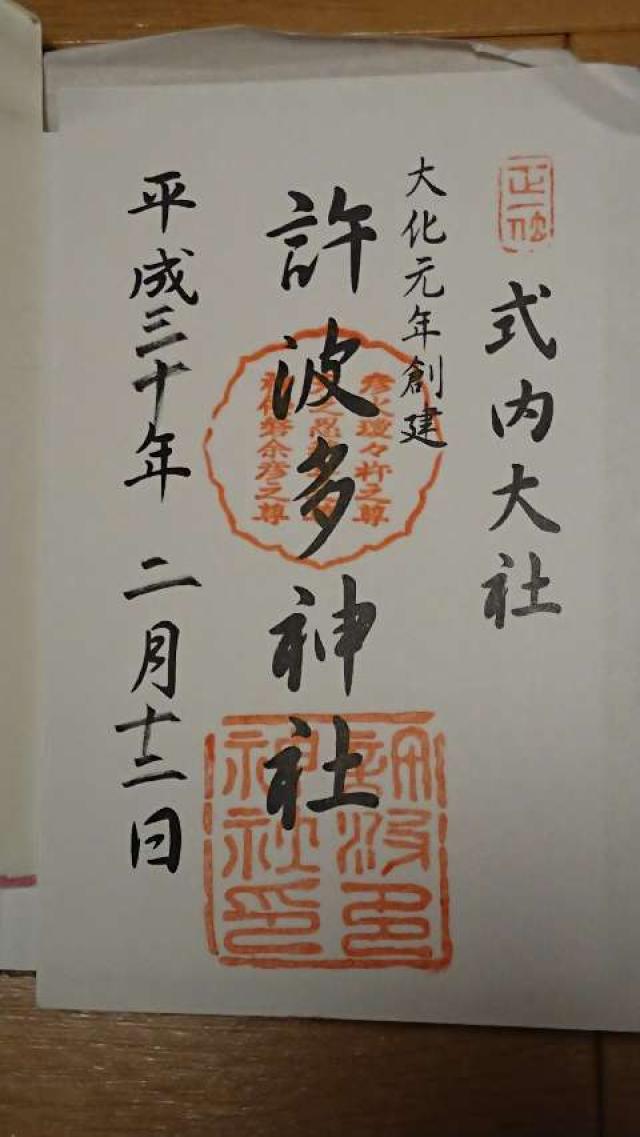 正一位
式内大社
大化元年創建
許波多神社
彦火瓊々杵之尊
神倭磐余彦之尊
許波多
神社印
平成三十年 二月十二日